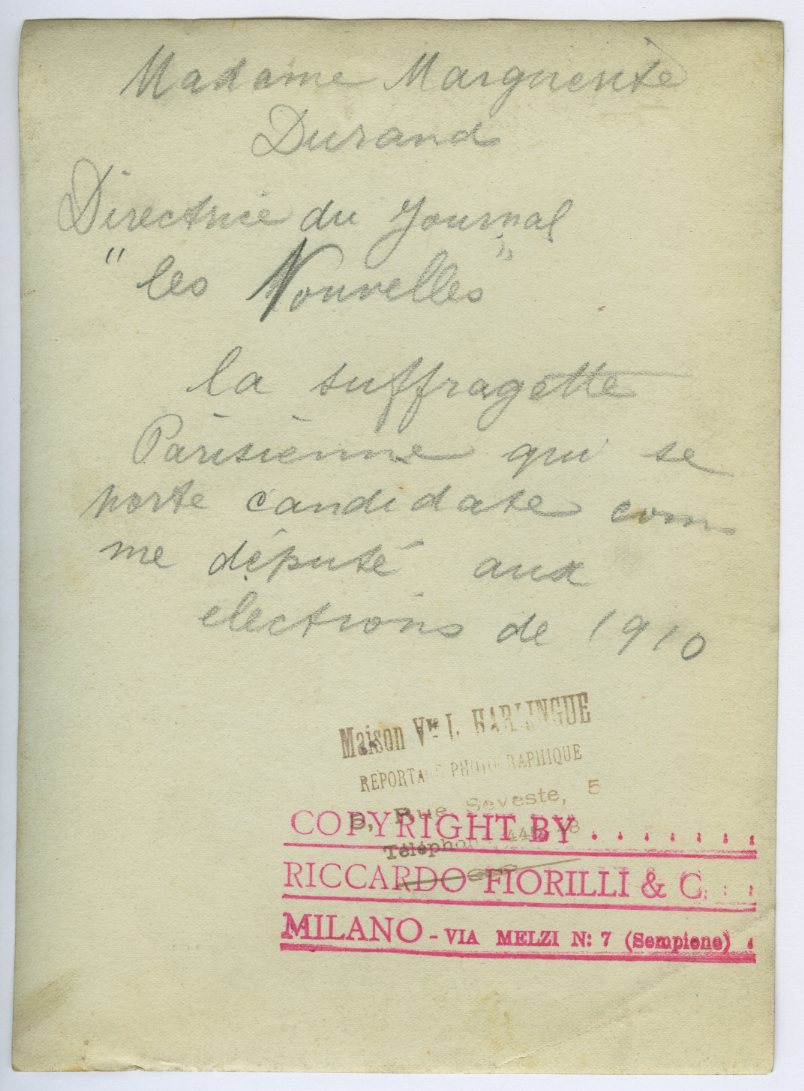 Madame Marguerite
Durand
Directrice du Journal
"les Nouvelles"
la suffragette
Parisienne qui se
porte candidate com
me député aux
elections de 1910
Maison Vve L. HARLINGUE
REPORTAGE PHOTOGRAPHIQUE
5, Rue Seveste, 5
Téléphone
COPYRIGHT BY . . . . . . .
RICCARDO FIORILLI & C. . .
MILANO - VIA MELZI N: 7 (Sempione) .